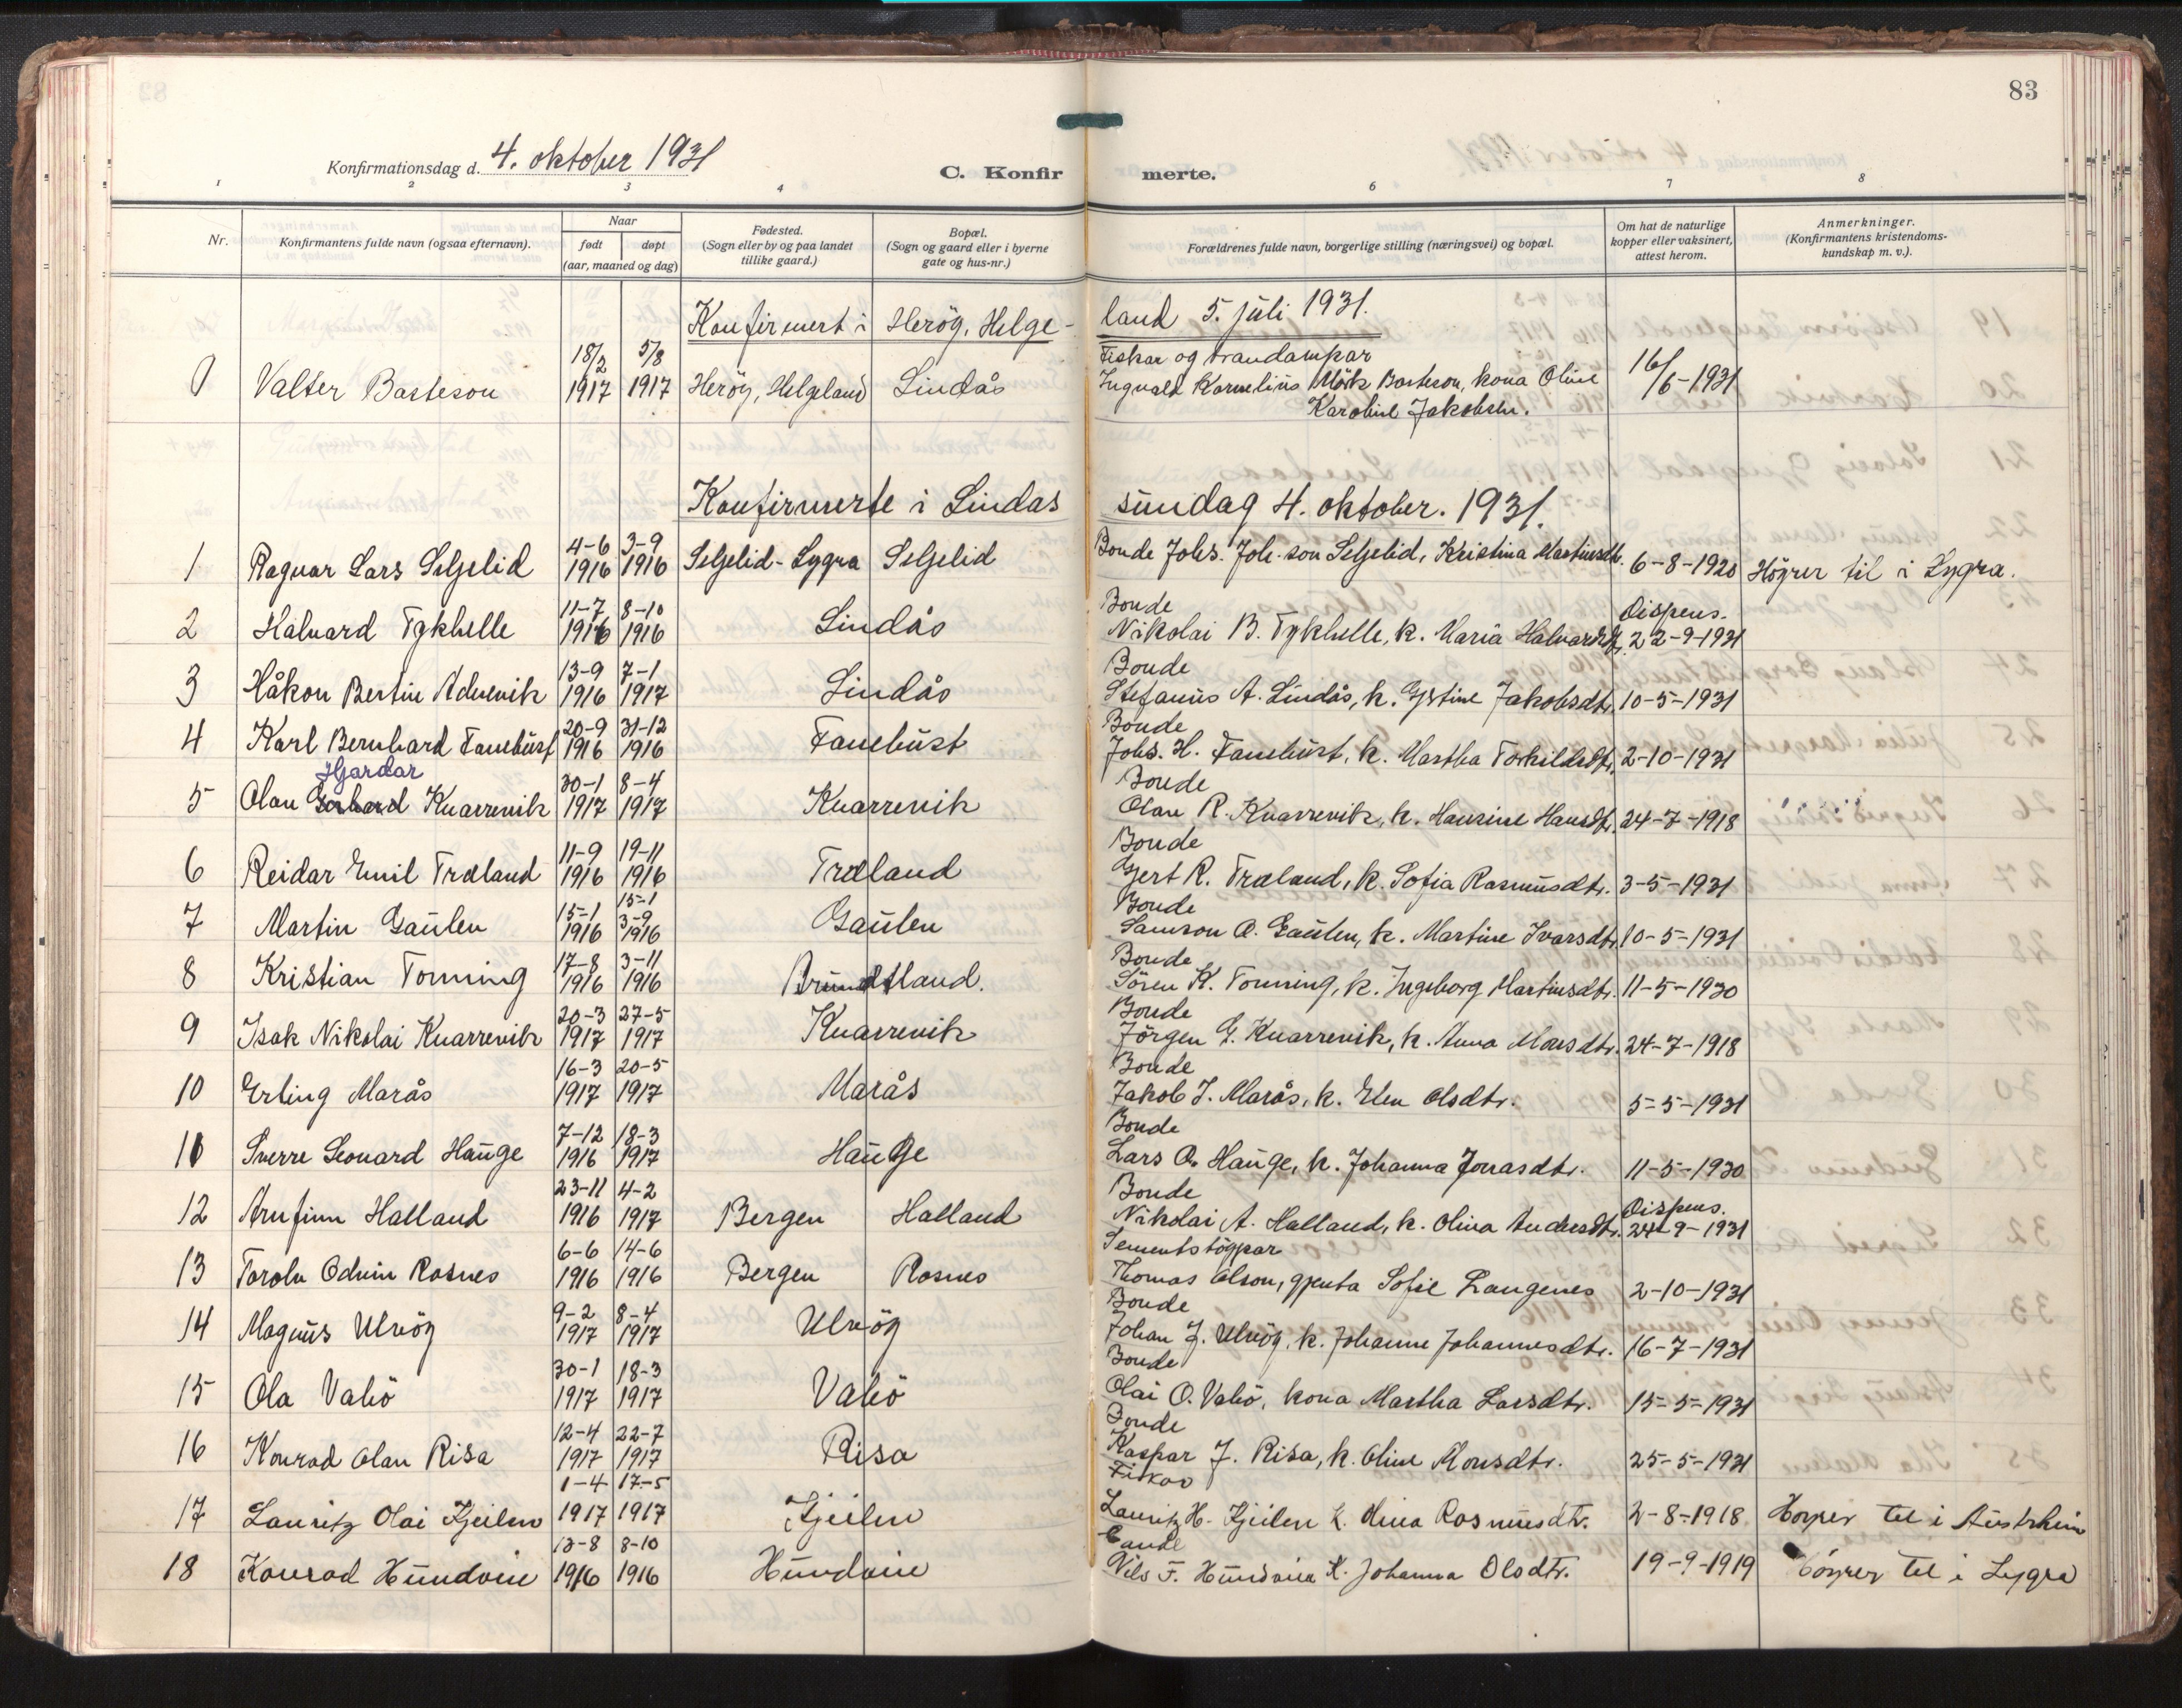 83
Konfirmationsdag d. 4. oktober 1931
C. Konfirmerte.
1 2 3 4 6 7 8
Nr.
Konfirmantens fulde navn (ogsaa efternavn).
Naar
født døpt
(aar, maaned og dag)
Fødested.
(Sogn eller by og paa landet
tillike gaard.)
Bopæl.
(Sogn og gaard eller i byerne
gate og hus-nr.)
Forældrenes fulde navn, borgerlige stilling (næringsvei) og bopæl.
Om hat de naturlige
kopper eller vaksinert,
attest herom.
Anmerkninger.
(Konfirmantens kristendoms-
kundskap m. v.).
Konfirmert i Herøy, Helgeland 5. juli 1931.
18/2 5/8 Fiskar og
1 Valter Basteson 1917 1917 Herøy, Helgeland Lindås Ingvald Kornelius Mörk Basteson, kona Oline 16/6-1931
Karoline Jakobsen.
Konfirmerte i Lindas sundag 4. oktober. 1931.
4-6 3-9
1 Ragnar Lars Seljelid 1916 1916 Seljelid-Lygra Seljelid Bonde Johs. Joh.son Seljelid, Kristina Martinsdtr. 6-8-1920 Höyrer til i Lygra.
11-7 8-10 Bonde Dispens.
2 Halvard Tykhelle 1916 1916 Lindås Nikolai B. Tykhelle, k. Maria Halvardsdtr. 22-9-1931
13-9 7-1 Bonde
3 Håkon Bertin Adnevik 1916 1917 Lindås Stefanus A. Lindås, k. Jakobsdtr. 10-5-1931
20-9 31-12 Bonde
4 Karl Bernhard Fanebust 1916 1916 Fanebust Johs. H. Fanebust, k. Martha Torkildsdtr. 2-10-1931
Hjardar 30-1 8-4 Bonde
5 Olav Gerhard Knarrevik 1917 1917 Knarrevik Olav R. Knarrevik, k. Hansine Hansdtr. 24-7-1918
11-9 19-11 Bonde
6 Reidar Emil Træland 1916 1916 Træland Gjert R. Træland, k. Sofia Rasmusdtr. 3-5-1931
15-1 15-1 3-9 Bonde
7 Martin Gaulen 1916 1916 Gaulen Samson O. Gaulen, k. Martine Ivarsdtr. 10-5-1931
17-8 3-11 Bonde
8 Kristian Tonning 1916 1916 Brundtland. Sören K. Tonning, k. Ingeborg Martinsdtr. 11-5-1930
20-3 27-5 Bonde
9 Isak Nikolai Knarrevik 1917 1917 Knarrevik Jörgen G. Knarrevik, k. Anna Monsdtr. 24-7-1918
16-3 20-5 Bonde
10 Erling Marås 1917 1917 Marås Jakob J. Marås, k. Elen Olsdtr. 5-5-1931
7-12 18-3 Bonde
11 Sverre Leonard Hauge 1916 1917 Hauge Lars O. Hauge, k. Johanna Jonasdtr. 11-5-1930
23-11 4-2 Bonde Dispens.
12 Arnfinn Halland 1916 1917 Bergen Halland Nikolai A. Halland, k. Olina Andersdtr. 24-9-1931
6-6 14-6 Sementstöypar
13 Torolv Odvin Rosnes 1916 1916 Bergen Rosnes Thomas Olson, gjenta Sofie Langenes 2-10-1931
9-2 8-4 Bonde
14 Magnus Ulvöy 1917 1917 Ulvöy Johan J. Ulvöy, k. Johanne Johannesdtr. 16-7-1931
30-1 18-3 Bonde
15 Ola Vabö 1917 1917 Vabö Olai O. Vabö, kona Martha Larsdtr. 15-5-1931
12-4 22-7 Bonde
16 Konrad Olav Risa 1917 1917 Risa Kaspar J. Risa, k. Oline Monsdtr. 25-5-1931
1-4 17-5 Fiskar
17 Lauritz Olai Kjeilen 1917 1917 Kjeilen Lauritz H. Kjeilen k. Olina Rasmusdtr. 2-8-1918 Höyrer til i Austrheim
13-8 8-10 Bonde
18 Konrad Hundvin 1916 1916 Hundvin Nils F. Hundvin k. Johanna Olsdtr. 19-9-1919 Höyrer til i Lygra